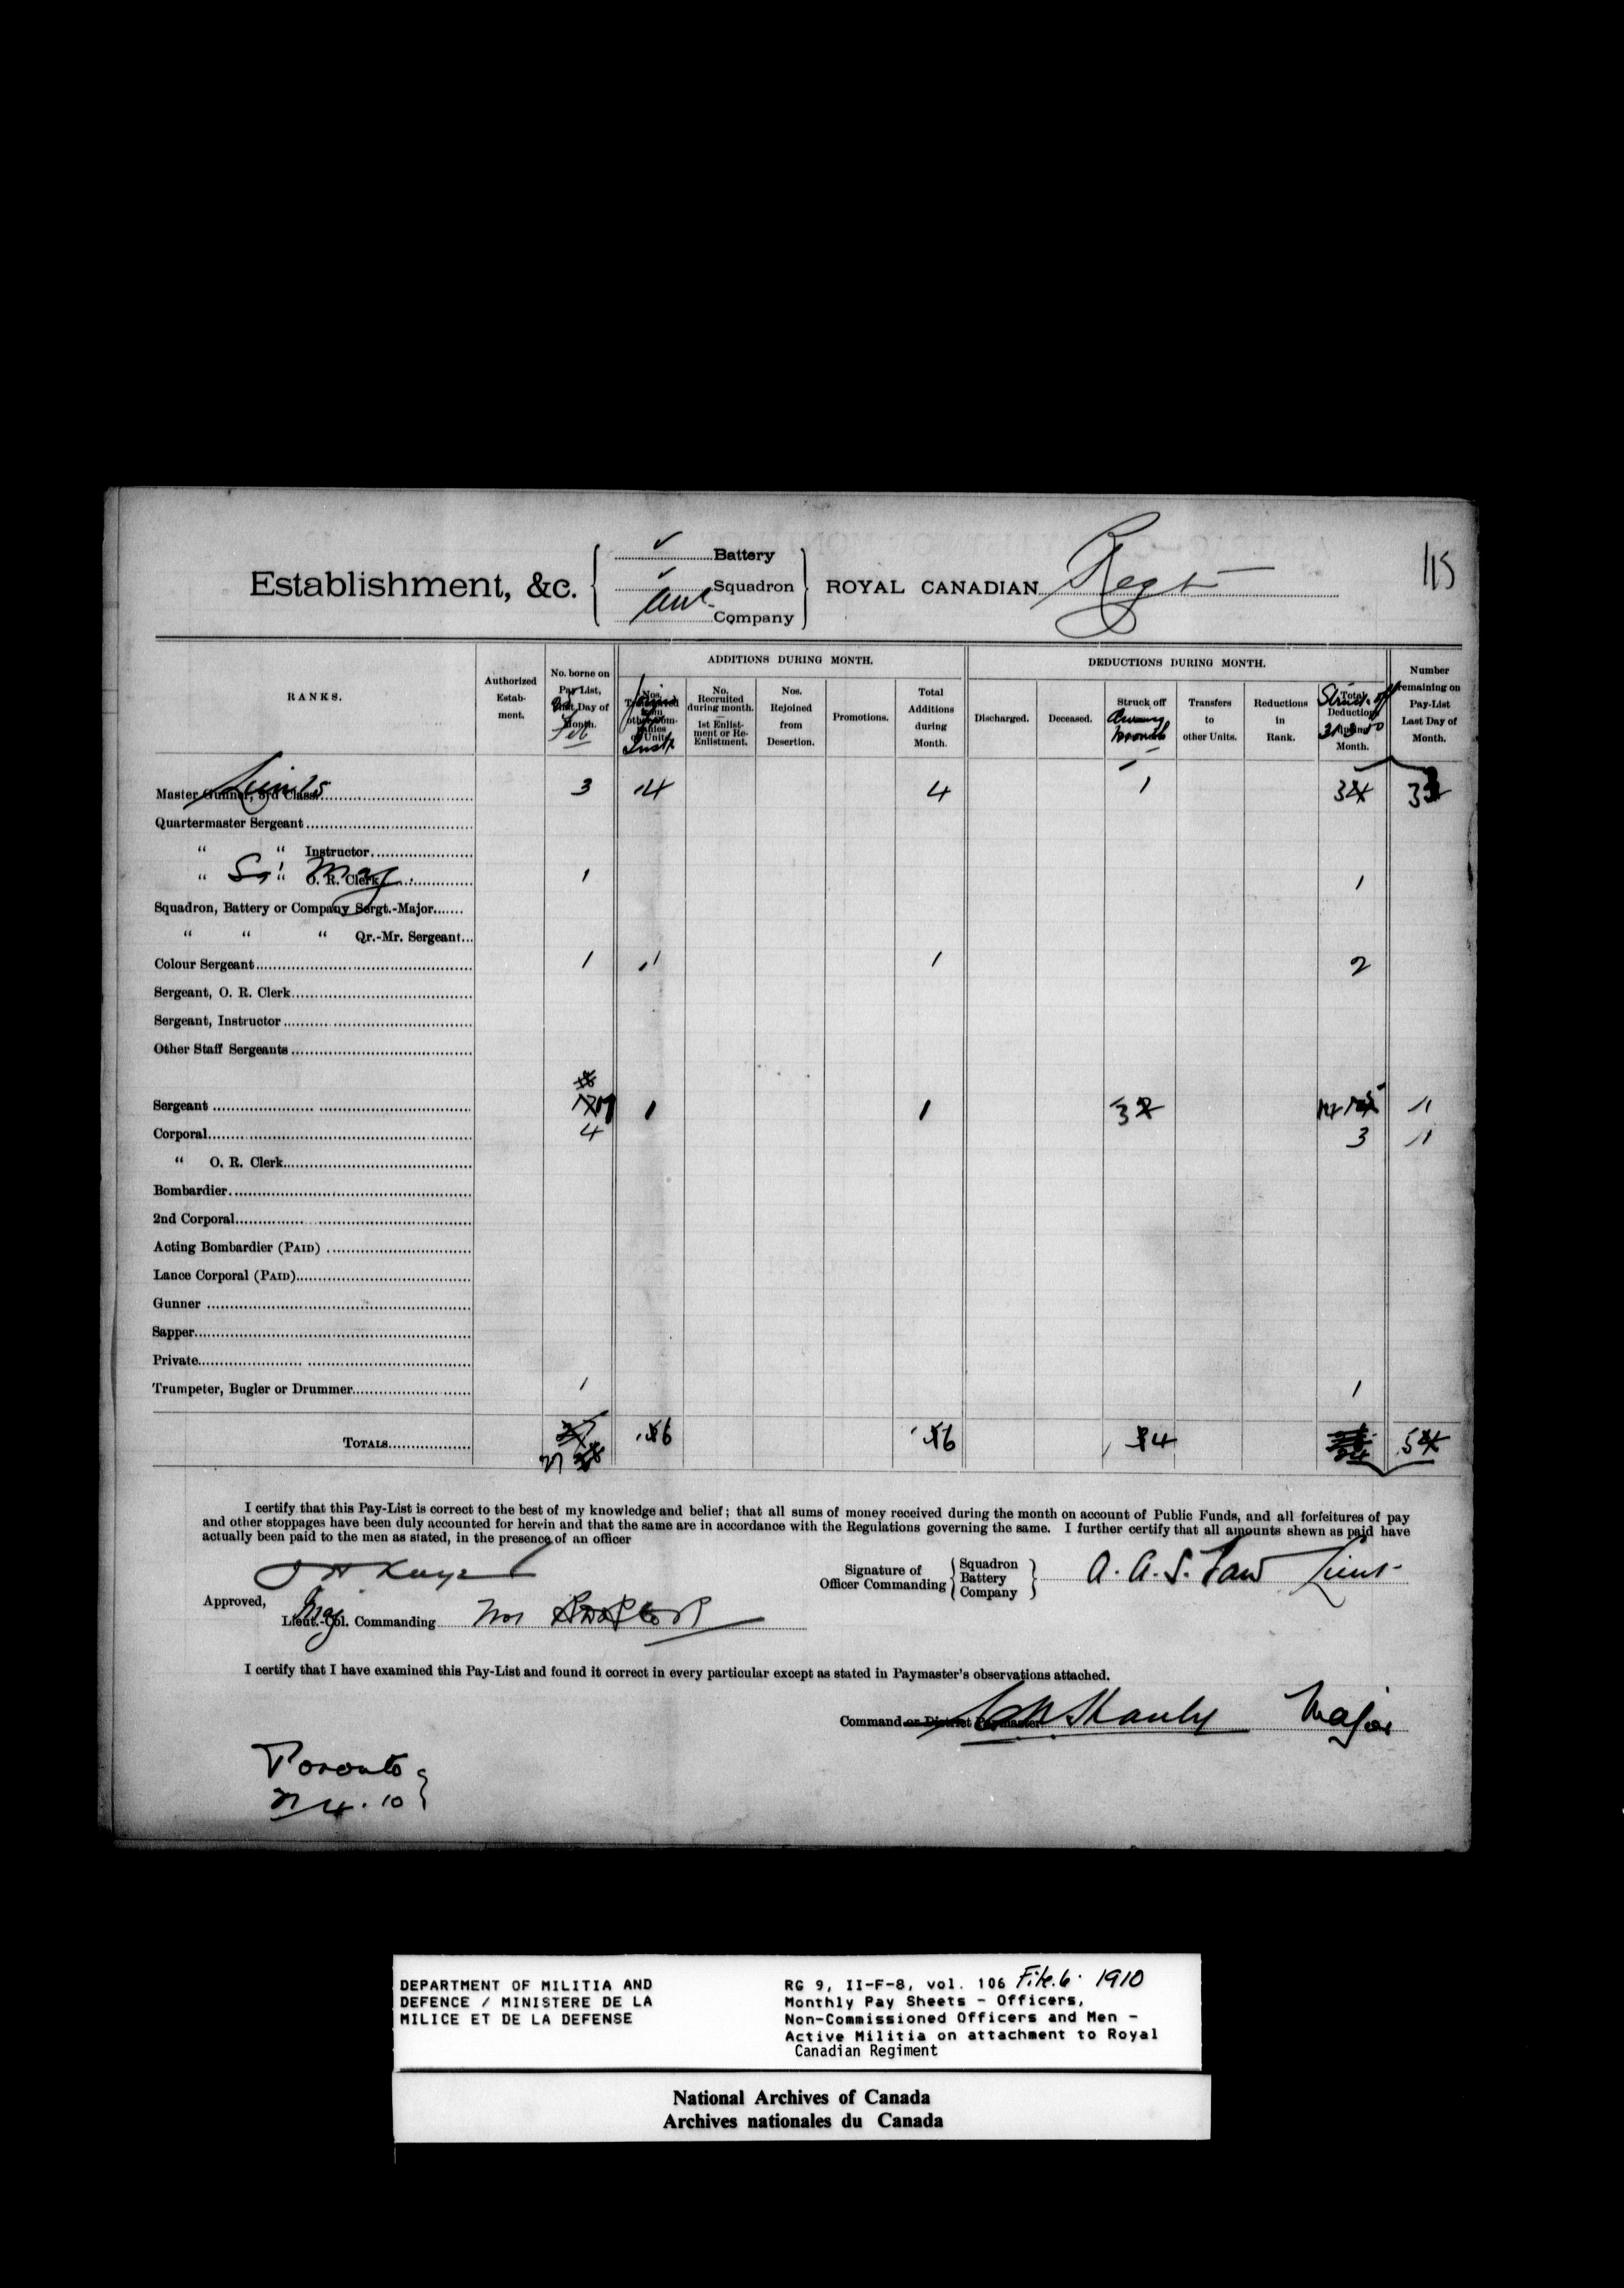 115
Battery
Establishment, &c. Squadron ROYAL CANADIAN Regt
Company
RANKS.
Authorized Estab- ment.
No. borne on Pay List, Day of Month. Feb
ADDITIONS DURING MONTH.
No. Recruited during month. — 1st Enlist- ment or Re- Enlistment.
Nos. Rejoined from Desertion.
Promotions.
Total Additions during Month.
DEDUCTIONS DURING MONTH.
Discharged.
Deceased.
Struck off during month
Transfers to other Units.
Reductions in Rank.
Struck off Total Deductions Month.
Number remaining on Pay-List Last Day of Month.
Master Gunner, 3rd Class Lieuts 3 4 4 1 3
Quartermaster Sergeant
" " Instructor
" " O. R. Clerk 1 1
Squadron, Battery or Company Sergt.-Major
" " " Qr.-Mr. Sergeant
Colour Sergeant 1 1 1 2
Sergeant, O. R. Clerk
Sergeant, Instructor
Other Staff Sergeants
Sergeant 17 1 1 3 1
Corporal 4 3 1
" O. R. Clerk
Bombardier
2nd Corporal
Acting Bombardier (PAID)
Lance Corporal (PAID)
Gunner
Sapper
Private
Trumpeter, Bugler or Drummer 1 1
TOTALS 27 6 6 4 5
I certify that this Pay-List is correct to the best of my knowledge and belief; that all sums of money received during the month on account of Public Funds, and all forfeitures of pay
and other stoppages have been duly accounted for herein and that the same are in accordance with the Regulations governing the same. I further certify that all amounts shewn as paid have
actually been paid to the men as stated, in the presence of an officer
Signature of Officer Commanding Squadron Battery Company
Lieut
Approved,
Maj
Lieut.-Col. Commanding
I certify that I have examined this Pay-List and found it correct in every particular except as stated in Paymaster's observations attached.
Command or District Paymaster Major
Toronto
DEPARTMENT OF MILITIA AND
DEFENCE / MINISTERE DE LA
MILICE ET DE LA DEFENSE
RG 9, II-F-8, vol. 106 File.6. 1910
Monthly Pay Sheets - Officers,
Non-Commissioned Officers and Men -
Active Militia on attachment to Royal
Canadian Regiment
National Archives of Canada
Archives nationales du Canada